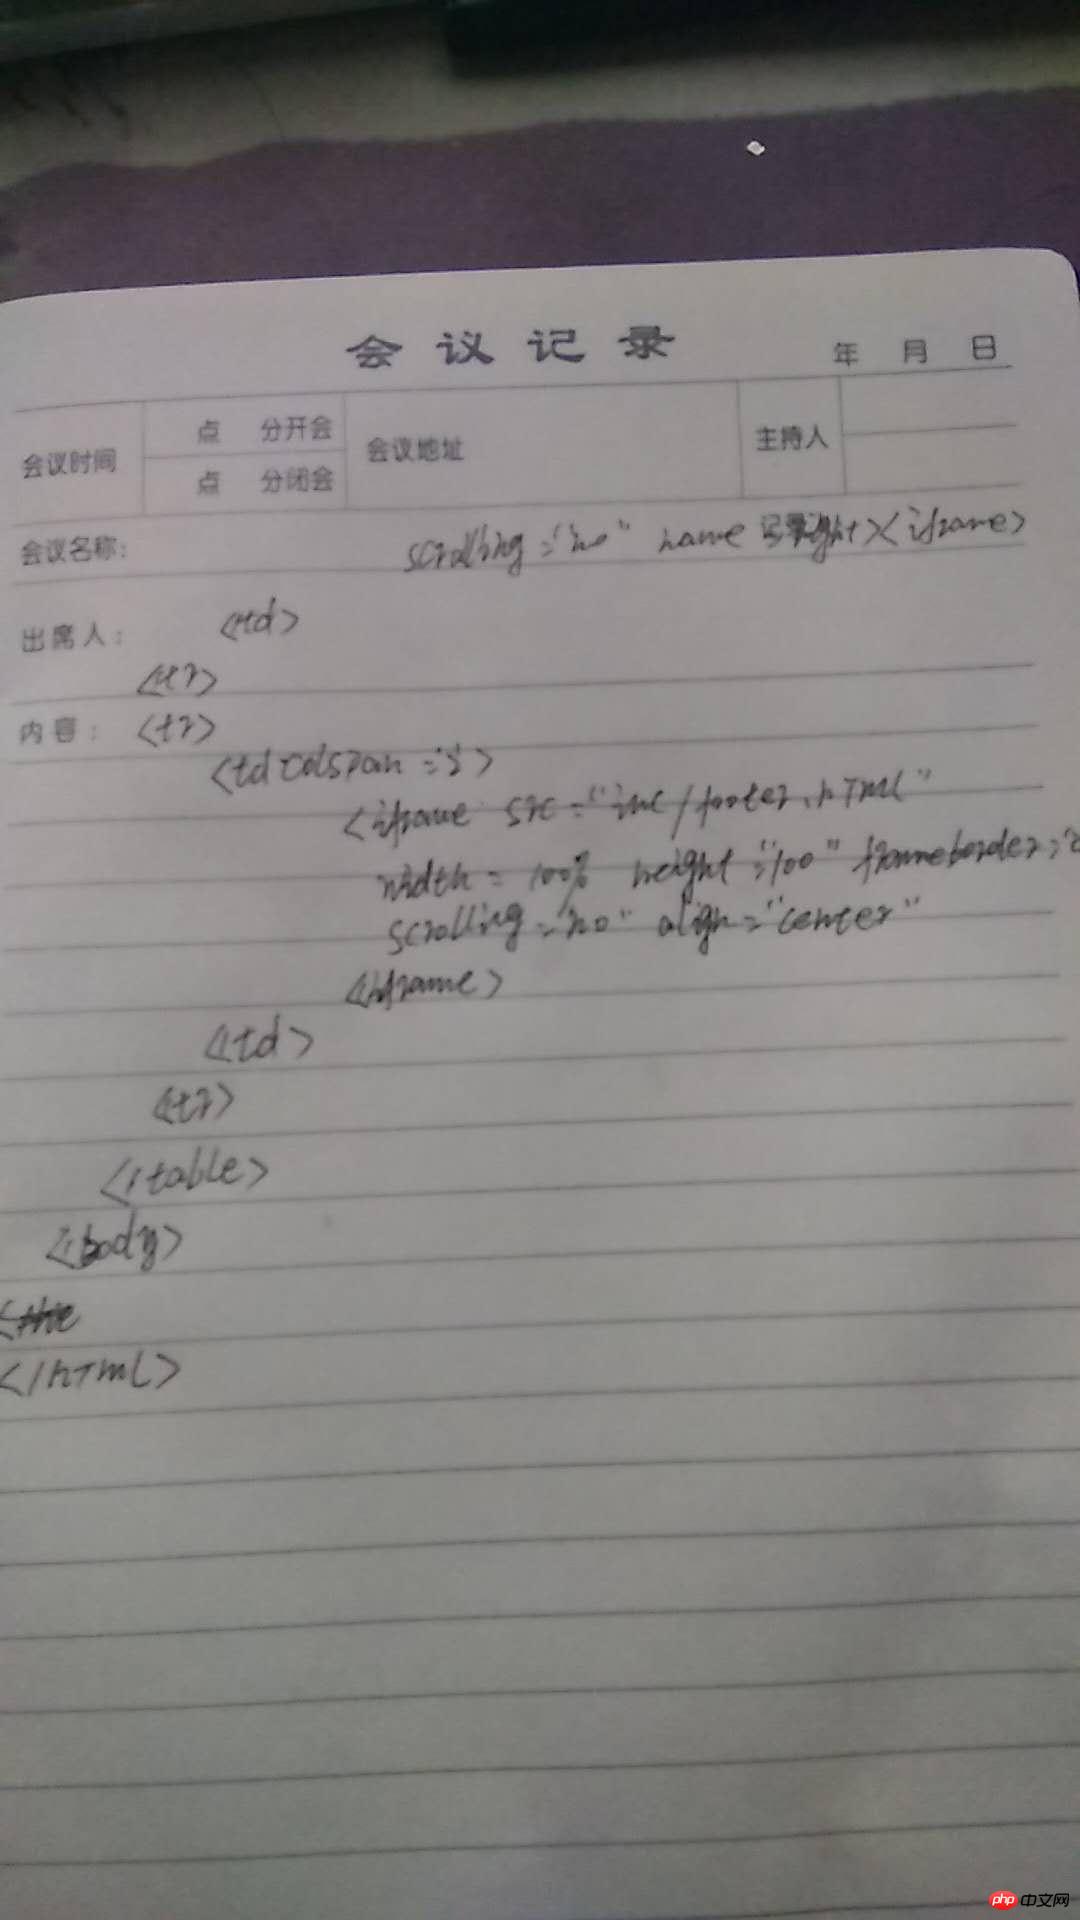 会议记录
年 月 日
会议时间
点 分开会
点 分闭会
会议地址
主持人
会议名称:
scrolling="no" name ><iframe>
出席人:
<td>
<tr>
内容: <tr>
<td colspan=">
<iframe src="inc/footer.hTML"
width=100% height="100" frameborder=
scrolling="no" align="center"
</iframe>
</td>
</tr>
</table>
</body>
</hTML>
php 中文网